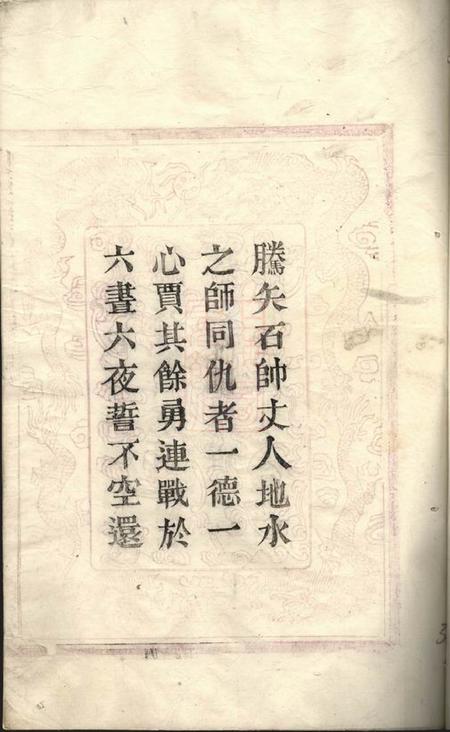 騰矢石帥丈人地水
之師同仇者一德一
心賈其餘勇連戰於
六晝六夜誓不空還